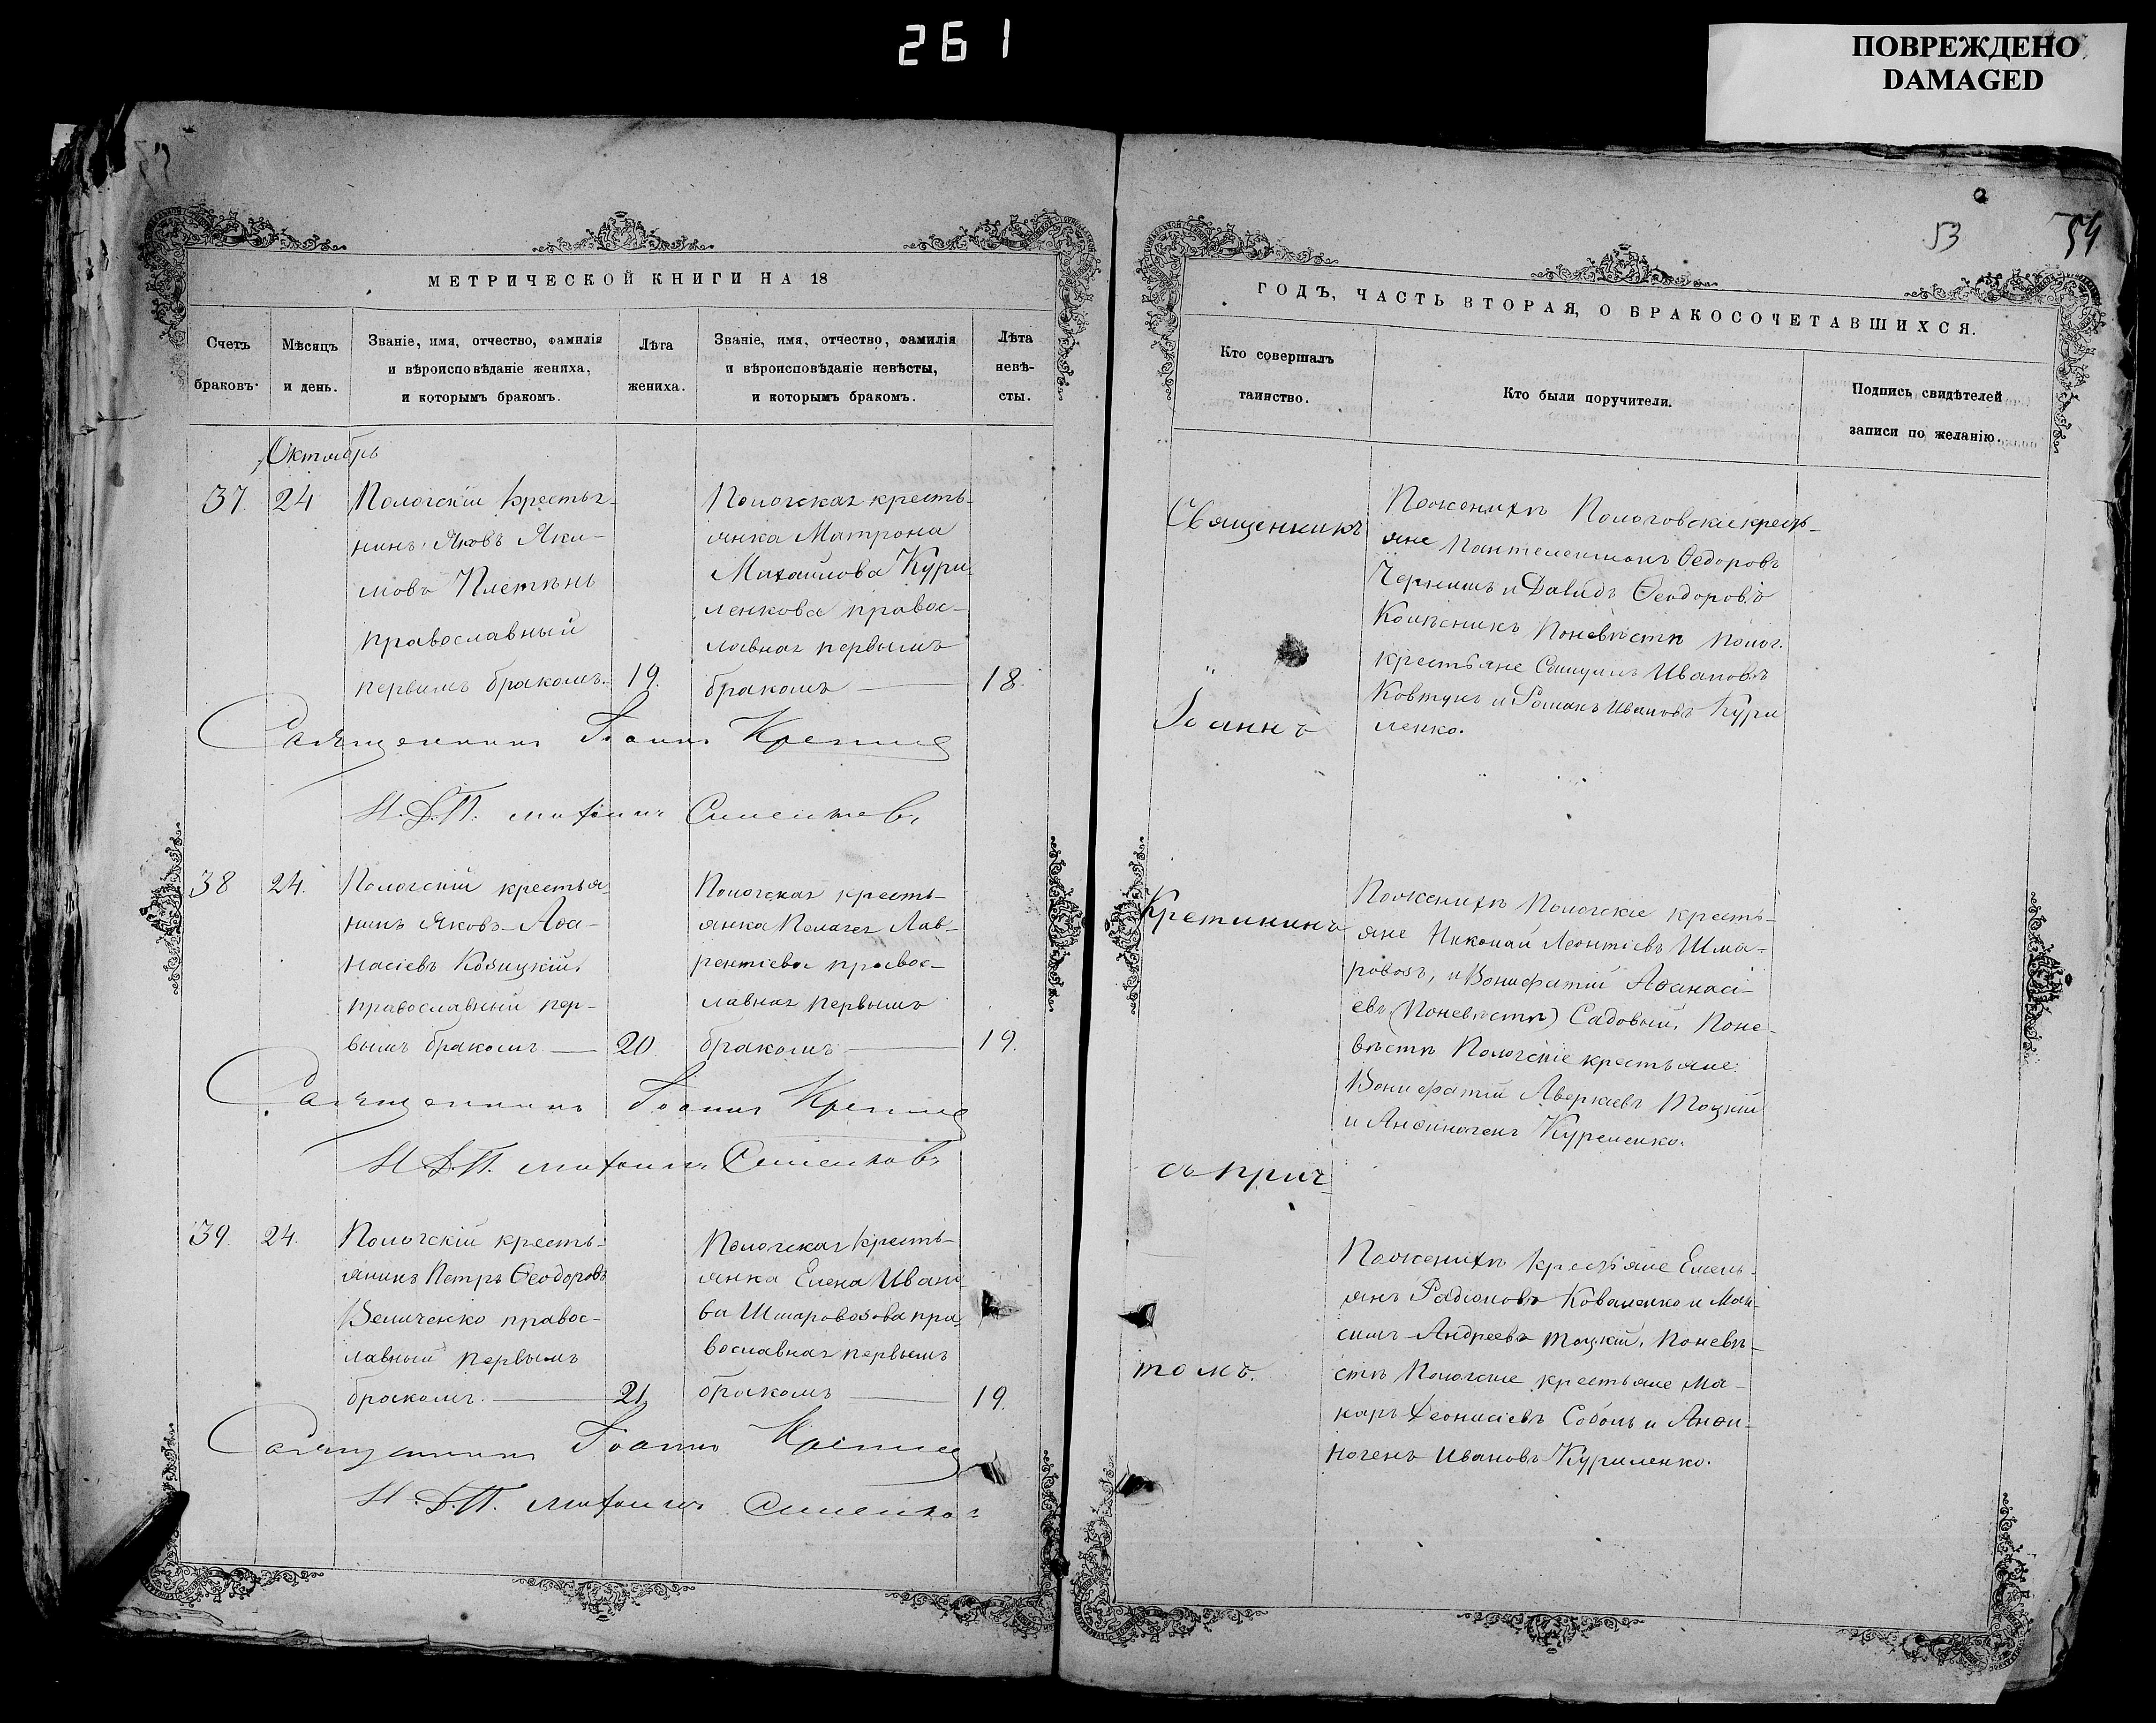 261
ПОВРЕЖДЕНО
DAMAGED
53
54
МЕТРИЧЕСКОЙ КНИГИ НА 18
Счетъ браковъ.
Мѣсяцъ и день.
Званіе, имя, отчество, фамилія
и вѣроисповѣданіе жениха,
и которымъ бракомъ.
Лѣта жениха.
Званіе, имя, отчество, фамилія
и вѣроисповѣданіе невѣсты,
и которымъ бракомъ.
Лѣта невѣ-
сты.
Октябрь
37. 24
Пологскій крестья-
нинъ Яковъ Яки-
мовъ Плетѣнь
православный
первымъ бракомъ. 19.
Пологская кресть-
янка Матрона
Михайлова Кури-
ленкова правос-
лавная первымъ
бракомъ 18.
Священникъ Іоаннъ
Н.Д.П.
38 24.
Пологскій крестья-
нинъ Яковъ Аѳа-
насіевъ Козицкій,
православный пер-
вымъ бракомъ 20.
Пологская кресть-
янка Пелагея Лав-
рентіева правос-
лавная первымъ
бракомъ 19.
Священникъ Іоаннъ
Н.Д.П.
39. 24.
Пологскій кресть-
янинъ Петръ Ѳеодоровъ
Величенко правос-
лавный первымъ
бракомъ. 21
Пологская кресть-
янка Елена Ивано-
ва Шмаровозова пра-
вославная первымъ
бракомъ 19.
Священникъ Іоаннъ
Н.Д.П.
ГОДЪ, ЧАСТЬ ВТОРАЯ, О БРАКОСОЧЕТАВШИХСЯ.
Кто совершалъ
таинство.
Кто были поручители.
Подпись свидѣтелей
записи по желанію.
Священникъ
Іоаннъ
Кретининъ
съ прич-
томъ.
По женихѣ Пологовскіе кресть-
яне Пантелеимонъ Ѳедоровъ
Чернишъ и Давидъ Ѳеодоровъ
Колѣсникъ По невѣстѣ Полог.
крестьяне Самуилъ Ивановъ
Ковтунъ и Романъ Ивановъ Кури
ленко.
По женихѣ Пологскіе кресть-
яне Николай Леонтіевъ Шма-
ровозъ, и Вонифатій Аѳанасі-
евъ (По невѣстѣ) Садовый, По не-
вѣстѣ Пологскіе крестьяне:
Вонифатій Аверкіевъ Тоцкій
и Анѳиногенъ Куреленко.
По женихѣ крестьяне Емель-
янъ Радіоновъ Коваленко и Мак-
симъ Андреевъ Тоцкій, По невѣ-
стѣ Пологскіе крестьяне Ма-
каръ Деонисіевъ Соболь и Анѳи-
ногенъ Ивановъ Куриленко.